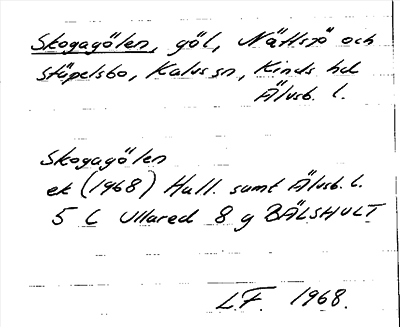 Skogagölen, göl, Nättsjö och
Stäpelsbo, Kalvs sn, Kinds hd
Älvsb. l.
Skogagölen
ek (1968) Hall. samt Älvsb. l.
5 C Ullared 8 g BÄLSHULT
L.F. 1968.